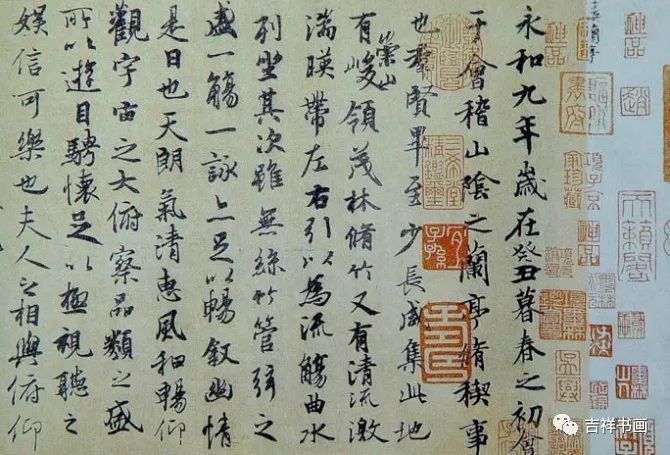 永和九年歲在癸丑暮春之初會
于會稽山陰之蘭亭脩稧事
也羣賢畢至少長咸集此地
有崇山峻領茂林脩竹又有清流激
湍暎帶左右引以為流觴曲水
列坐其次雖無絲竹管弦之
盛一觴一詠亦足以暢敘幽情
是日也天朗氣清惠風和暢仰
觀宇宙之大俯察品類之盛
所以遊目騁懷足以極視聽之
娛信可樂也夫人之相與俯仰
神品
天籟閣
吉祥书画